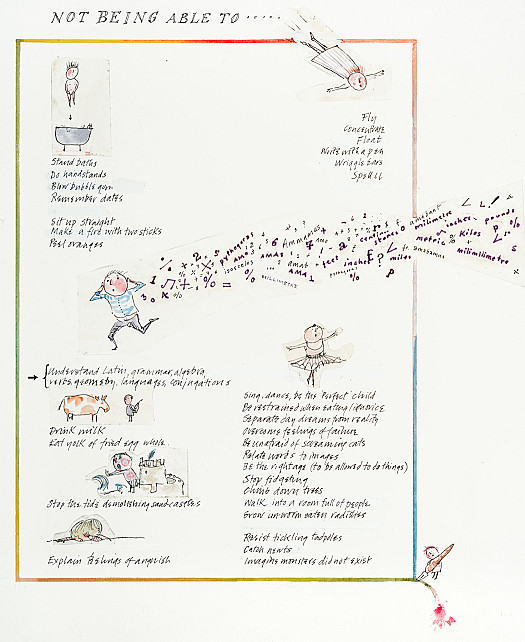 NOT BEING ABLE TO .....
Fly
Concentrate
Float
Write with a pen
Wriggle ears
Spell
Stand baths
Do handstands
Blow bubble gum
Remember dates
Sit up straight
Make a fire with two sticks
Peel oranges
isosceles
AMAS
Ammamas
amat
AMA
feet
inches
miles
stones
metric
kilos
inches
pounds
millimetre
Understand Latin, grammar, algebra,
verbs, geometry, languages, conjugations
Drink milk
Eat yolk of fried egg whole.
Stop the tide demolishing sandcastles
Explain feelings of anguish
Sing, dance, be the perfect child
Be restrained when eating liquorice
Separate day dreams from reality
Overcome feelings of failure
Be unafraid of screaming cats
Relate words to images
Be the right age (to be allowed to do things)
Stop fidgeting
Climb down trees
Walk into a room full of people
Grow unworm eaten radishes
Resist tickling tadpoles
Catch newts
Imagine monsters did not exist